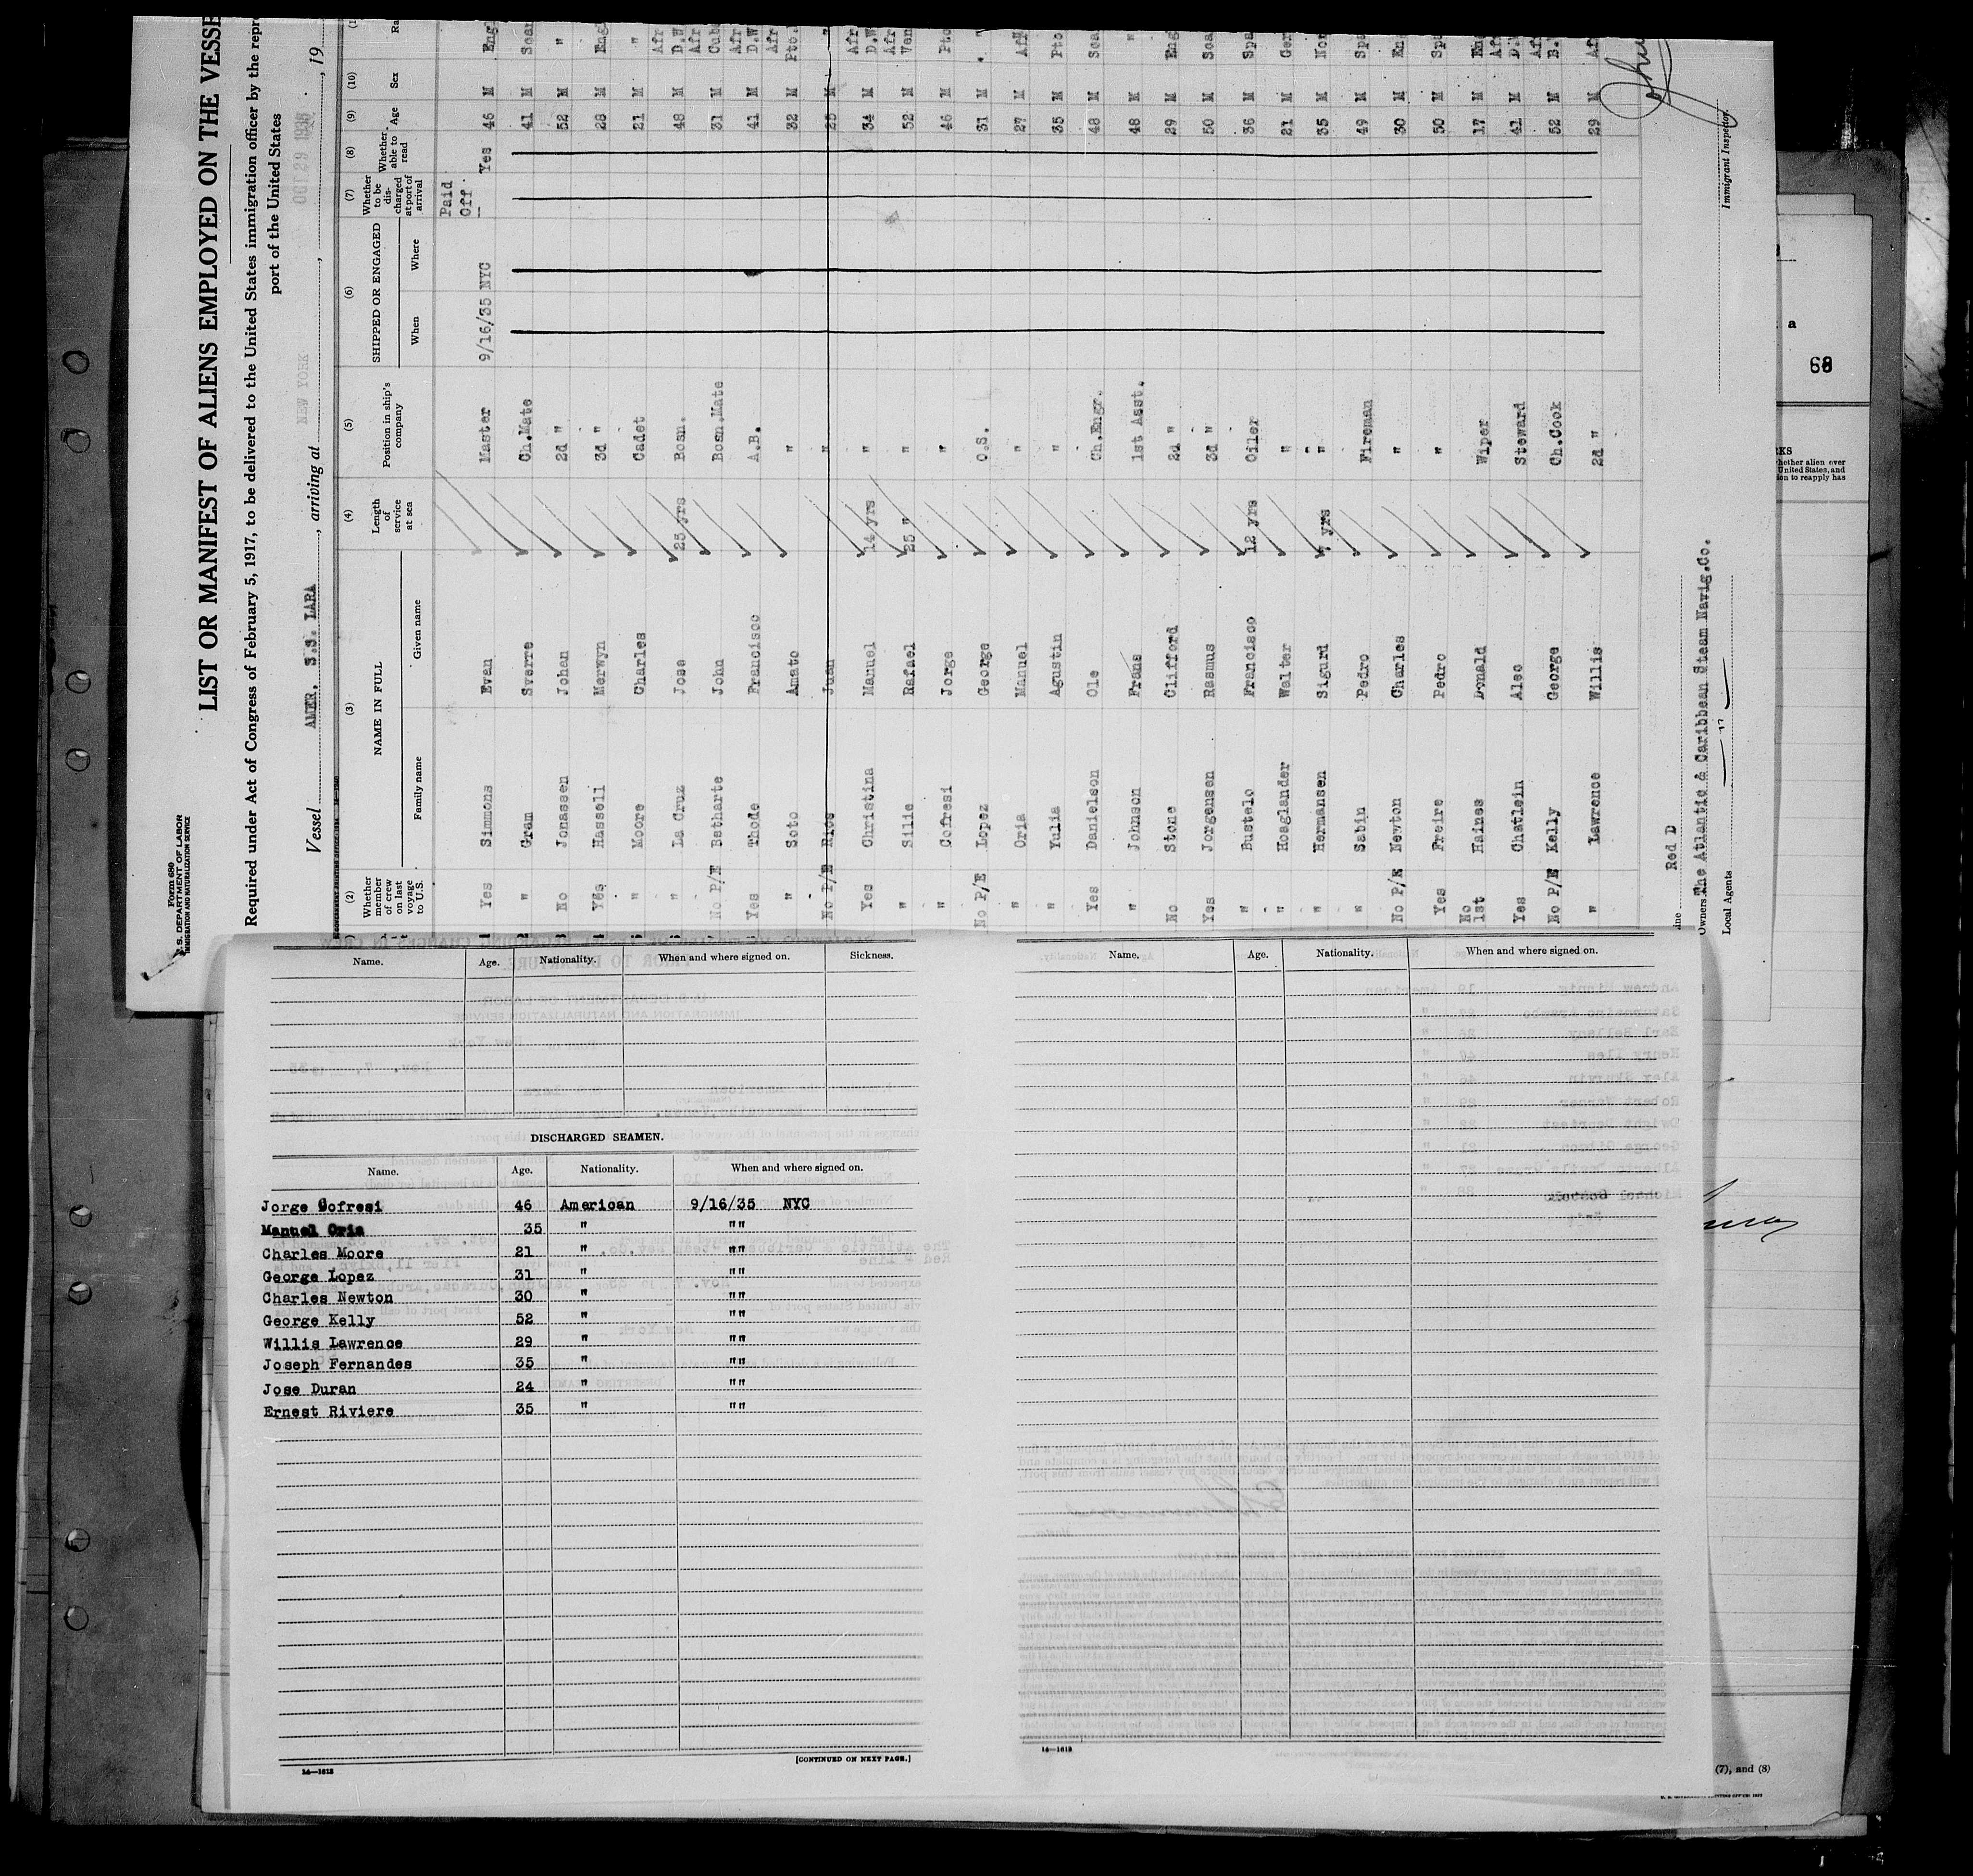 Form 680
U.S. DEPARTMENT OF LABOR
IMMIGRATION AND NATURALIZATION SERVICE
LIST OR MANIFEST OF ALIENS EMPLOYED ON THE VESSE
Required under Act of Congress of February 5, 1917, to be delivered to the United States immigration officer by the repr
port of the United States
Vessel AMER. S.S. LARA, arriving at NEW YORK, OCT 29 1935, 19
(2) (3) (4) (5) (6) (7) (8) (9) (10)
Whether member of crew on last voyage to U.S. NAME IN FULL Length of service at sea Position in ship's company SHIPPED OR ENGAGED Whether to be discharged at port of arrival Whether able to read Age Sex Ra
Family name Given name When Where
Paid Off
Yes Simmons Evan Master 9/16/35 NYC Yes 46 M Engl
" Gram Sverre Ch.Mate 41 M Scan
No Jonassen Johan 2d " 52 M "
Yes Hassell Merwyn 3d " 28 M Eng
" Moore Charles Cadet 21 M "
" La Cruz Jose 25 yrs Bosn. 48 M Afr D.W
No P/E Batharte John Bosn.Mate 31 M Afr Cub
Yes Thode Francisco A.B. 41 M Afr D.W
" Soto Amato " 32 M Afr Pto.
No P/E Rios Juan " 25 M "
Yes Christina Manuel 14 yrs " 34 M Afr D.W
" Silie Rafael 25 " " 52 M Afr Ven
" Cofresi Jorge " 46 M Pto
No P/E Lopez George O.S. 31 M "
" Oria Manuel " 27 M Afr
" Yulia Agustin " 35 M Pto
Yes Danielson Ole Ch.Engr. 48 M Sca
" Johnson Frans 1st Asst. 48 M "
No Stone Clifford 2d " 29 M Eng
Yes Jorgensen Rasmus 3d " 50 M Sca
" Bustelo Francisco 12 yrs Oiler 36 M Spa
" Hoaglander Walter " 21 M Ger
" Hermansen Sigurd 7 yrs " 35 M Nor
" Sabin Pedro Fireman 49 M Spa
No P/E Newton Charles " 30 M En
Yes Freire Pedro " 50 M Spa
No 1st Haines Donald Wiper 17 M Eng
Yes Chatlein Alec Steward 41 M Afr D.W
No P/E Kelly George Ch.Cook 52 M Afr B.
" Lawrence Willis 2d " 29 M Af
Line Red D
Owners The Atlantic & Caribbean Steam Navig.Co.
Local Agents "
Immigrant Inspector.
a
68
RKS
hether alien ever
United States, and
ion to reapply has
Name. Age. Nationality. When and where signed on. Sickness.
DISCHARGED SEAMEN.
Name. Age. Nationality. When and where signed on.
Jorge Cofresi 46 American 9/16/35 NYC
Manuel Oria 35 " ""
Charles Moore 21 " ""
George Lopez 31 " ""
Charles Newton 30 " ""
George Kelly 52 " ""
Willis Lawrence 29 " ""
Joseph Fernandes 35 " ""
Jose Duran 24 " ""
Ernest Riviere 35 " ""
[CONTINUED ON NEXT PAGE.]
14—1613
Name. Age. Nationality. When and where signed on.
14—1613
(7), and (8)